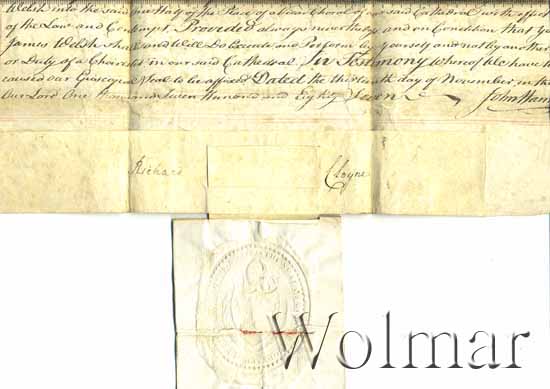 Welsh into the said our Half of the Place of a Vicar Choral of our said Cathedral with effect
of the Law and Contempt. Provided always nevertheless and on Condition that you
James Welsh shall and Will Do Execute and Perform by yourself and not by another
or Duty of a Chorister in our said Cathedral. In Testimony whereof We have
caused our Episcopal Seal to be affixed Dated the thirteenth day of November, in the
Our Lord One thousand Seven Hundred and Eighty Seven
John Han
Richard Cloyne
Wolmar